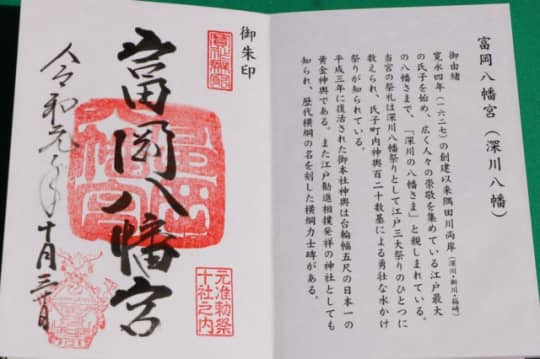 富岡八幡宮(深川八幡)
御由緒
寛永四年(一六二七)の創建以来隅田川両岸(深川・新川・箱崎)
の氏子を始め、広く人々の崇敬を集めている江戸最大
の八幡さまで、「深川の八幡さま」と親しまれている。
当宮の祭礼は深川八幡祭りとして江戸三大祭りのひとつに
数えられ、氏子町内神輿百二十数基による勇壮な水かけ
祭りが知られている。
平成三年に復活された御本社神輿は台輪幅五尺の日本一の
黄金神輿である。また江戸勧進相撲発祥の神社としても
知られ、歴代横綱の名を刻した横綱力士碑がある。
御朱印
富岡八幡宮
元准勅祭
十社之内
令和元年十月三十日